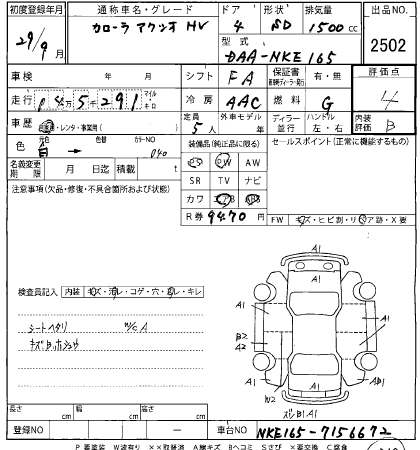 初度登録年月 通称車名・グレード ドア 形状 排気量 出品NO.
29/9月 カローラ アクシオ HV 4 SD 1500cc 2502
型式
DAA-NKE165
車検 年 月 シフト FA 保証書 有・無 評価点
走行 マイル km 冷房 AAC 燃料 G 4
車歴 自家用・レンタ・事業用( ) 定員 5人 外車モデル 年 ディーラー 並行 ハンドル 左・右 内装評価 B
色 白 → カラーNO 040 装備品(純正品に限る) セールスポイント(正常に機能するもの)
名義変更期限 月 日迄 積載 t PS PW AW
注意事項(欠品・修復・不具合箇所および状態) SR TV ナビ
カワ エアB ABS
R券 9470円
FW キズ・ヒビ割・リペア跡・X要
検査員記入 内装 キズ・汚レ・コゲ・穴・ヨレ・キレ
シートヘタリ W/C A
A1
A1
A1
A1
B2
A2
A1
A1
W2
長さ cm 幅 cm 高さ cm
登録NO ー 車台NO NKE165-7156672
P 要塗装 W波有り ××取替済 A線キズ Bヘコミ Sさび ×要交換 C腐食